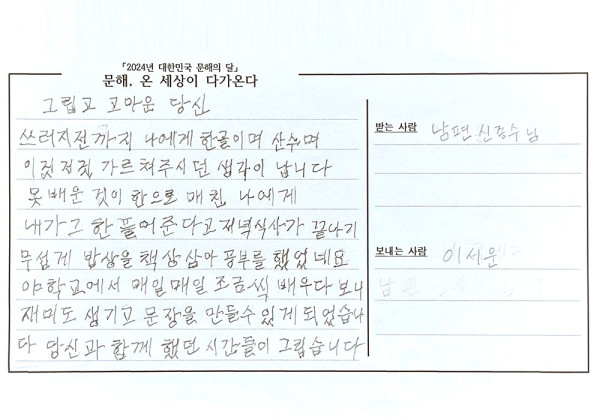 『2024년 대한민국 문해의 달』
문해, 온 세상이 다가온다
그립고 고마운 당신
쓰러지전까지 나에게 한글이며 산수며
이것저것 가르쳐주시던 생각이 납니다
못 배운 것이 한으로 매친 나에게
내가그 한 풀어준다고 저녁식사가 끝나기
무섭게 밥상을 책상삼아 공부를 했었네요
야학교에서 매일매일 조금씩 배우다 보니
재미도 생기고 문장을 만들수있게되었습니
다 당신과 함께 했던 시간들이 그립습니다
받는 사람 남편 신경수님
보내는 사람 이서운